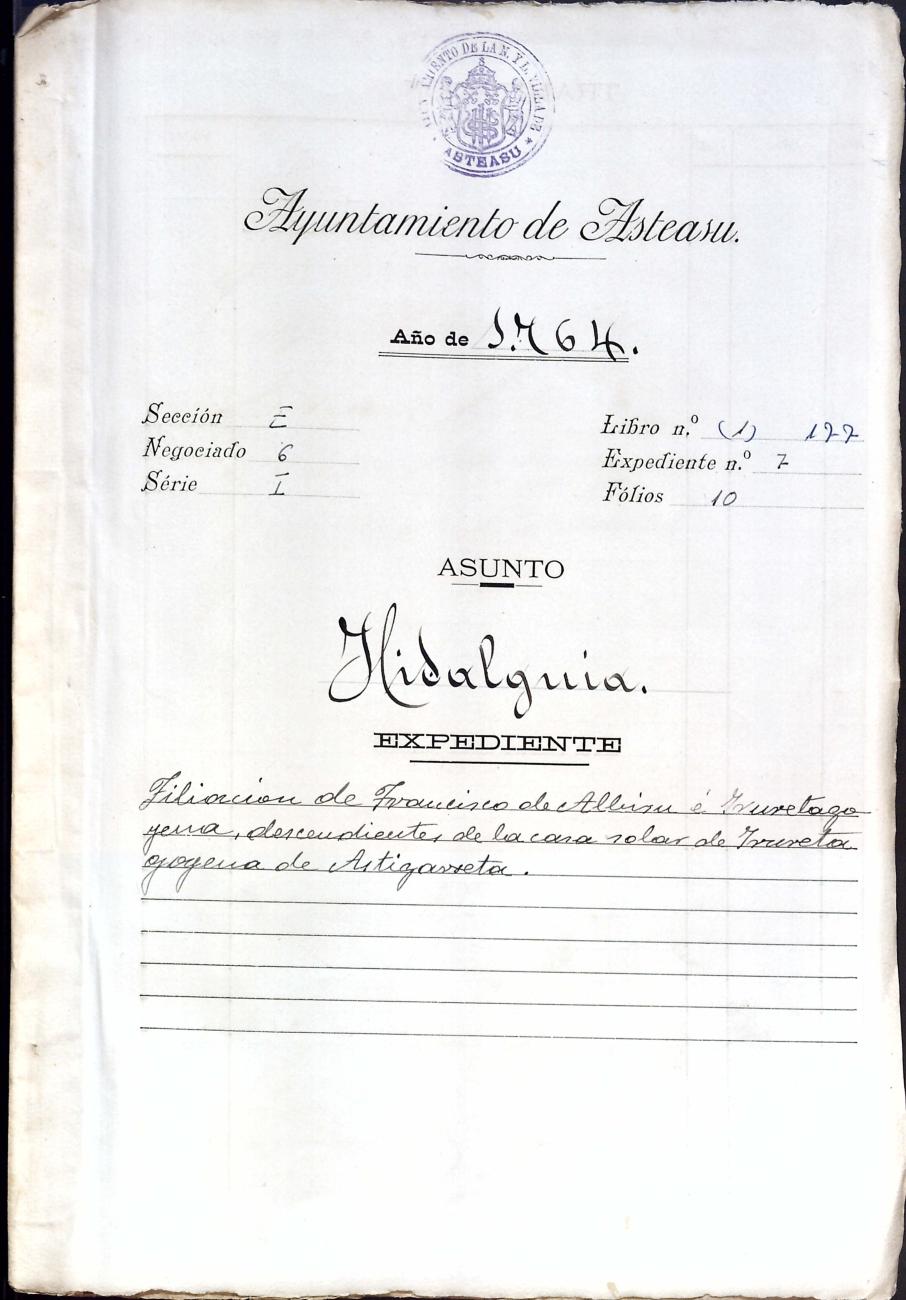 AYUNTAMIENTO DE LA N. Y L. VILLA DE
* ASTEASU *
Ayuntamiento de Asteasu.
Año de 1.764.
Sección E
Libro n.º (1) 177
Negociado 6
Expediente n.º 7
Série I
Fólios 10
ASUNTO
Hidalguia.
EXPEDIENTE
Filiacion de Francisco de Albisu é Yruretago
yena, descendientes de la casa solar de Yrureta
goyena de Astigarreta.